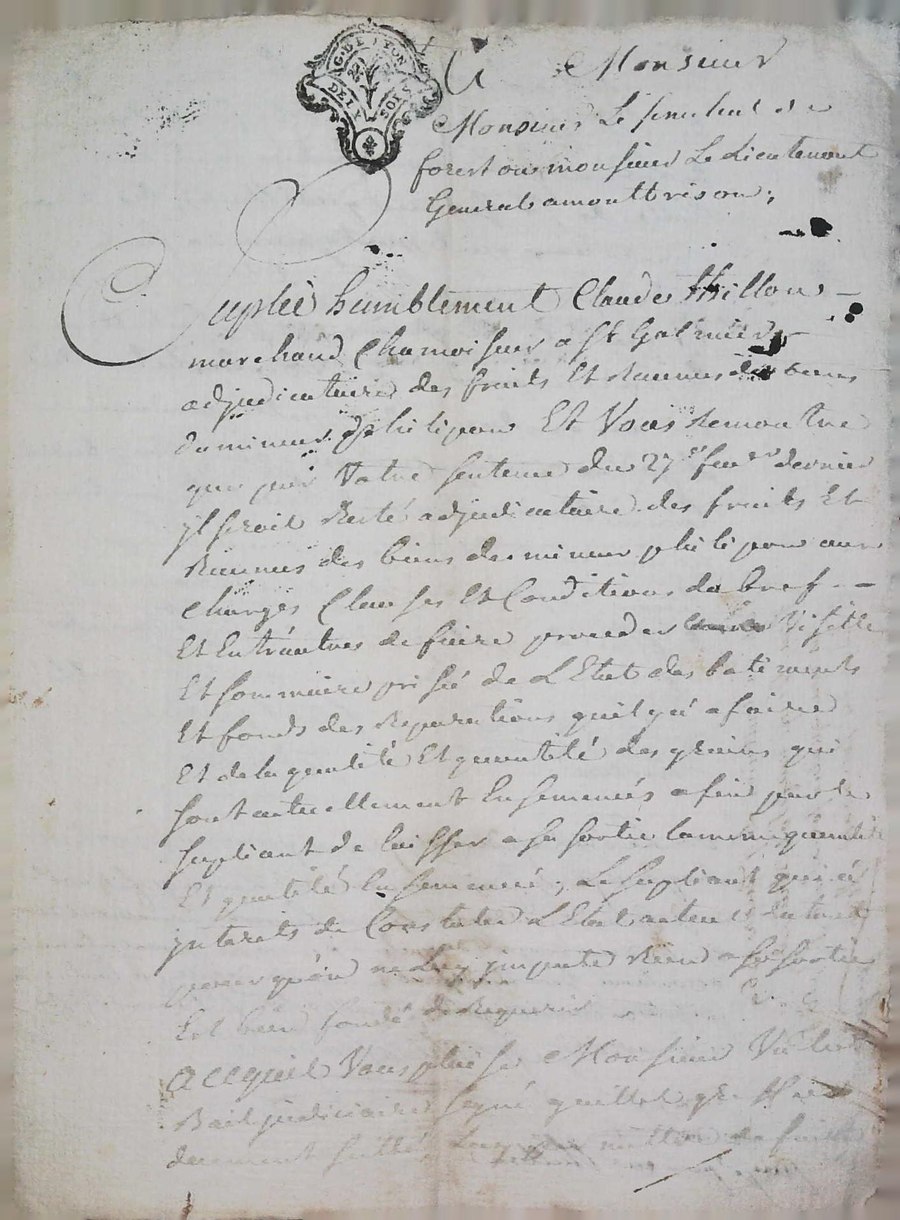 G. DE LYON
DEUX SOLS
A Monsieur
Monsieur Le senechal de
forest ou monsieur Le Lieutenant
General a montbrison;
Suplie humblement Claude Thillon
marchand Chamoiseur a St Galmier
adjudicataire des fruits Et Revenus des biens
du mineur philipon Et Vous Remontre
que par Votre sentence du 27e fevrier dernier
yl seroit Resté adjudicataire des fruits Et
Revenus des biens du mineur philipon aux
Charges Clauses Et Conditions du bref
Et Entráutres de faire proceder Visitte
Et sommaire prisé de L'Etat des batiments
Et fonds des Reparations quil y á a faire
Et de la qualité Et quantité des grains qui
sont actuellement Ensemencés afin par le
supliant de laisser a sa sortie la meme quantité
Et qualité Ensemencé, Le supliant qui á
jnterets de Constater L'Etat actuel
pour qu'on ne Luy jmpute Rien a sa sortie
Est bien fondé de Requerir
Acequil Vous plaise Monsieur Vû Le
Bail judiciaire signé
deument Scellé